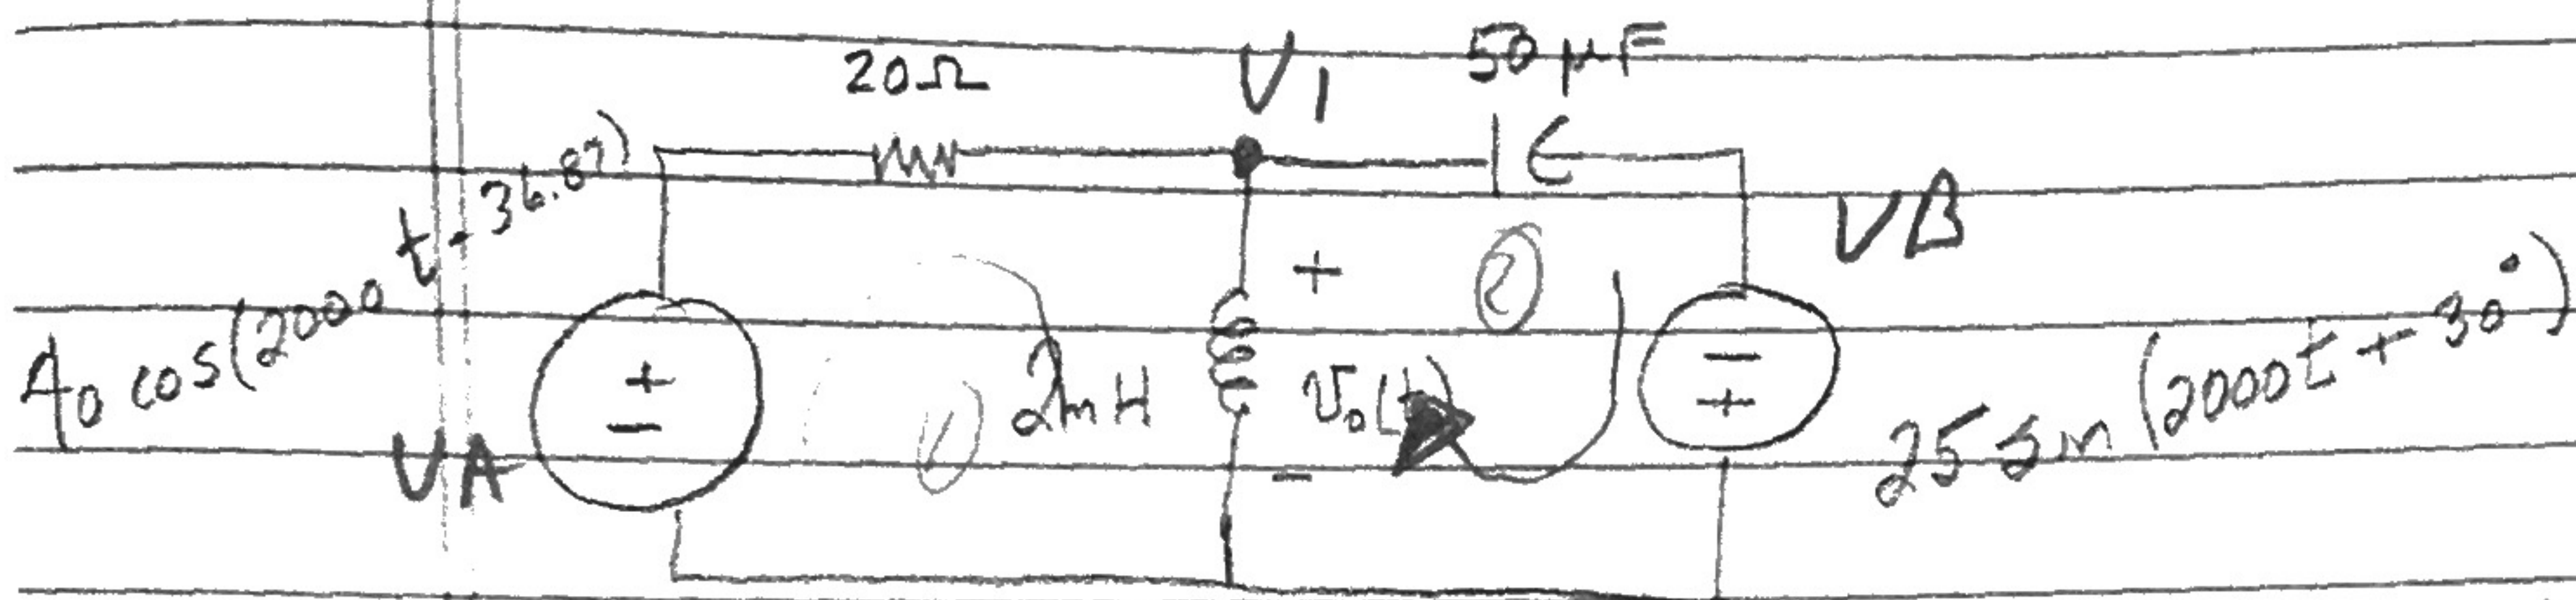 20Ω
V1
50 μF
40 cos(2000 t - 36.87)
VB
+
2
+
-
1
2mH
v₀(t)
-
+
VA
-
25 sin(2000t + 30°)